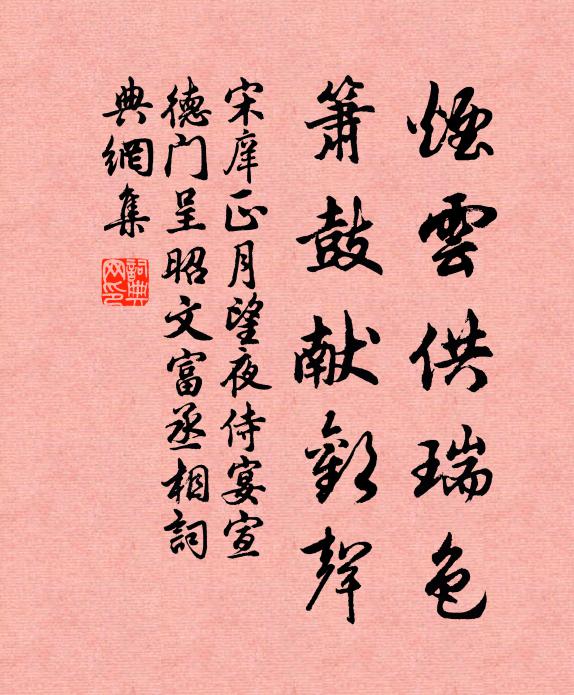 煙雲供瑞色
簫鼓献歡聲
宋庠正月望夜侍宴宣
德门呈昭文富丞相詞
典網集
詞典网印